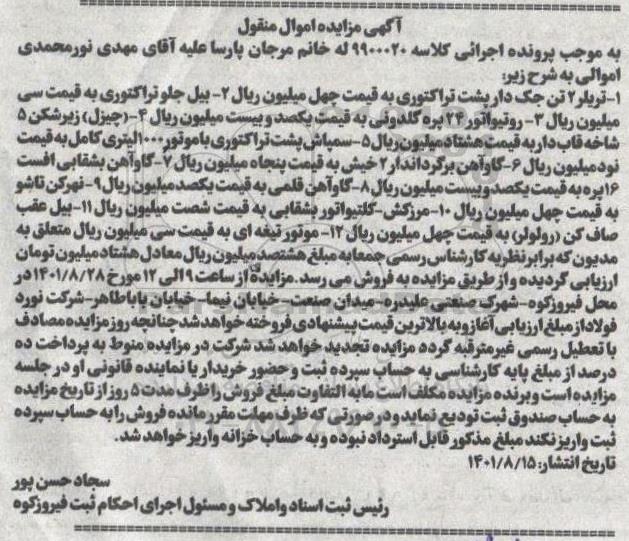 آگهی مزایده اموال منقول
به موجب پرونده اجرائی کلاسه ۹۹۰۰۰۲۰ له خانم مرجان پارسا علیه آقای مهدی نورمحمدی
اموالی به شرح زیر:
۱-تریلر ۲ تن جک دار پشت تراکتوری به قیمت چهل میلیون ریال ۲- بیل جلو تراکتوری به قیمت سی
میلیون ریال ۳- روتیواتور ۲۴ پره گلدونی به قیمت یکصد و بیست میلیون ریال ۴-(چیزل) زیرشکن ۵
شاخه قاب دار به قیمت هشتاد میلیون ریال ۵-سمپاش پشت تراکتوری با موتور ۱۰۰۰لیتری کامل به قیمت
نود میلیون ریال ۶-گاوآهن برگرداندار ۲ خیش به قیمت پنجاه میلیون ریال ۷-گاوآهن بشقابی افست
۱۶پره به قیمت یکصد و بیست میلیون ریال ۸-گاوآهن قلمی به قیمت یکصد میلیون ریال ۹-نهرکن تاشو
به قیمت چهل میلیون ریال ۱۰-مرزکش-کلتیواتور بشقابی به قیمت شصت میلیون ریال ۱۱-بیل عقب
صاف کن (رولولر) به قیمت چهل میلیون ریال ۱۲- موتور تیغه ای به قیمت سی میلیون ریال متعلق به
مدیون که برابر نظریه کارشناس رسمی جمعا به مبلغ هشتصد میلیون ریال معادل هشتاد میلیون تومان
ارزیابی گردیده و از طریق مزایده به فروش می رسد.مزایده از ساعت ۹ الی ۱۲ مورخ ۱۴۰۱/۸/۲۸ در
محل فیروزکوه-شهرک صنعتی علیدره-میدان صنعت-خیابان نیما-خیابان باباطاهر-شرکت نورد
فولاد از مبلغ ارزیابی آغاز و به بالاترین قیمت پیشنهادی فروخته خواهد شد چنانچه روز مزایده مصادف
با تعطیل رسمی غیرمترقبه گردد مزایده تجدید خواهد شد شرکت در مزایده منوط به پرداخت ده
درصد از مبلغ پایه کارشناسی به حساب سپرده ثبت و حضور خریدار یا نماینده قانونی او در جلسه
مزایده است و برنده مزایده مکلف است مابه التفاوت مبلغ فروش را ظرف مدت ۵ روز از تاریخ مزایده
به حساب صندوق ثبت تودیع نماید و در صورتی که ظرف مهلت مقرر مانده فروش را به حساب سپرده
ثبت واریز نکند مبلغ مذکور قابل استرداد نبوده و به حساب خزانه واریز خواهد شد.
تاریخ انتشار: ۱۴۰۱/۸/۱۵
سجاد حسن پور
رئیس ثبت اسناد واملاک و مسئول اجرای احکام ثبت فیروزکوه